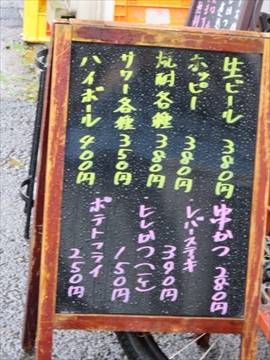 生ビール 380円
ホッピー 380円
焼酎各種 380円
サワー各種 350円
ハイボール 400円
串かつ 280円
レバーステーキ 390円
ヒレかつ(一ヶ) 150円
ポテトフライ 250円